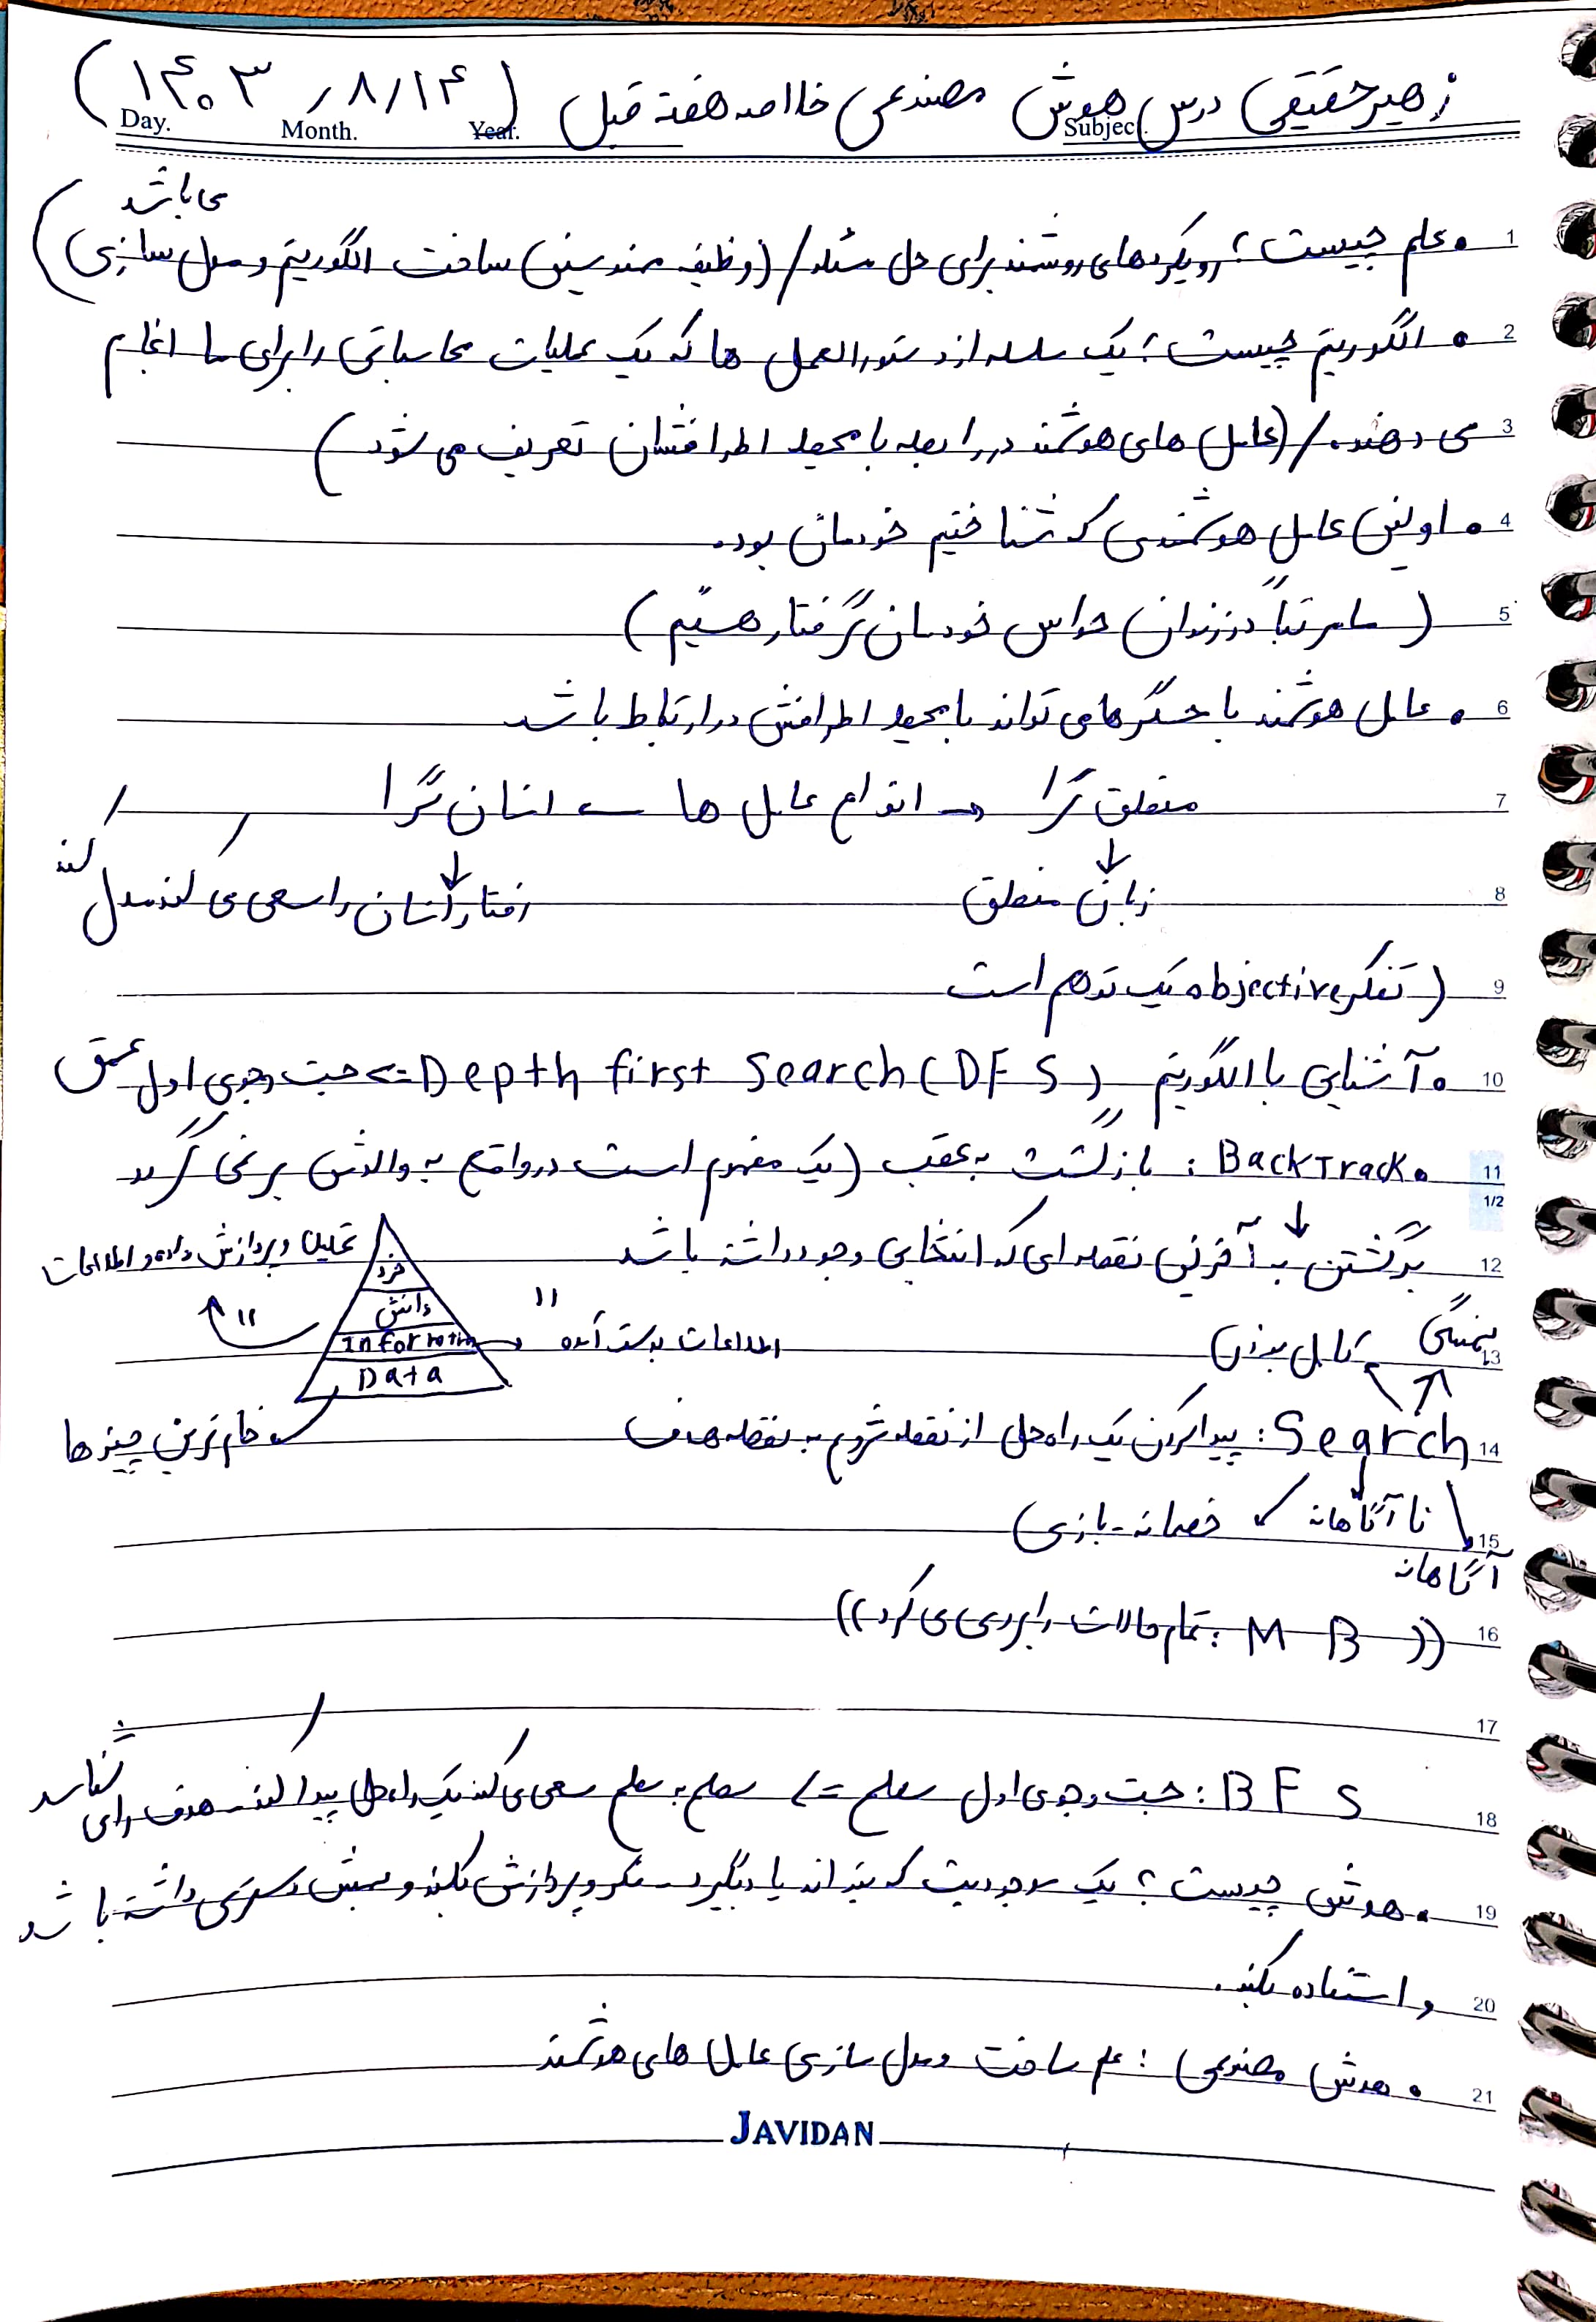 زهیر حقیقی درس هوش مصنوعی خلاصه هفته قبل (۱۴۰۳/۸/۱۴)
Day. Month. Year. Subject.
می باشد
1 • علم چیست؟ رویکردهای روشمند برای حل مسئله / (وظیفه مهندسین) ساخت الگوریتم و مدل سازی)
2 • الگوریتم چیست؟ یک سلسله از دستورالعمل ها که یک عملیات محاسباتی را برای ما انجام
3 می دهند. / (عامل های هوشمند در رابطه با محیط اطرافشان تعریف می شود)
4 • اولین عامل هوشمندی که شناختیم خودمان بود.
5 (ما مرتباً در زندان حواس خودمان گرفتار هستیم)
6 • عامل هوشمند با حسگرها می تواند با محیط اطرافش در ارتباط باشد
7 منطق گرا → انواع عامل ها ← انسان گرا
8 زبان منطق رفتار انسان را سعی می کند مدل کند
9 (تفکر objective یک توهم است
10 • آشنایی با الگوریتم Depth first Search (DFS) => جست و جوی اول عمق
11 • BackTrack : بازگشت به عقب (یک مفهوم است در واقع به والدش بر نمی گردد
1/2
12 برگشتن به آخرین نقطه ای که انتخابی وجود داشته باشد
تحلیل و پردازش داده و اطلاعات
خرد
دانش
Information → اطلاعات بدست آمده
Data
13 بهینگی کامل بودن
14 Search : پیدا کردن یک راه حل از نقطه شروع به نقطه هدف
خام ترین چیزها
15 نا آگاهانه خصمانه - بازی)
آگاهانه
16 ((M B : تمام حالات را بررسی می کرد))
17
18 BFS : جست و جوی اول سطح => سطح به سطح سعی می کند یک راه حل پیدا کند - هدف را می شناسد
19 • هوش چیست؟ یک موجودیت که بتواند یاد بگیرد - تفکر و پردازش بکند و بهش دسترسی داشته باشد
20 و استفاده بکند.
21 • هوش مصنوعی : علم ساخت و مدل سازی عامل های هوشمند
JAVIDAN